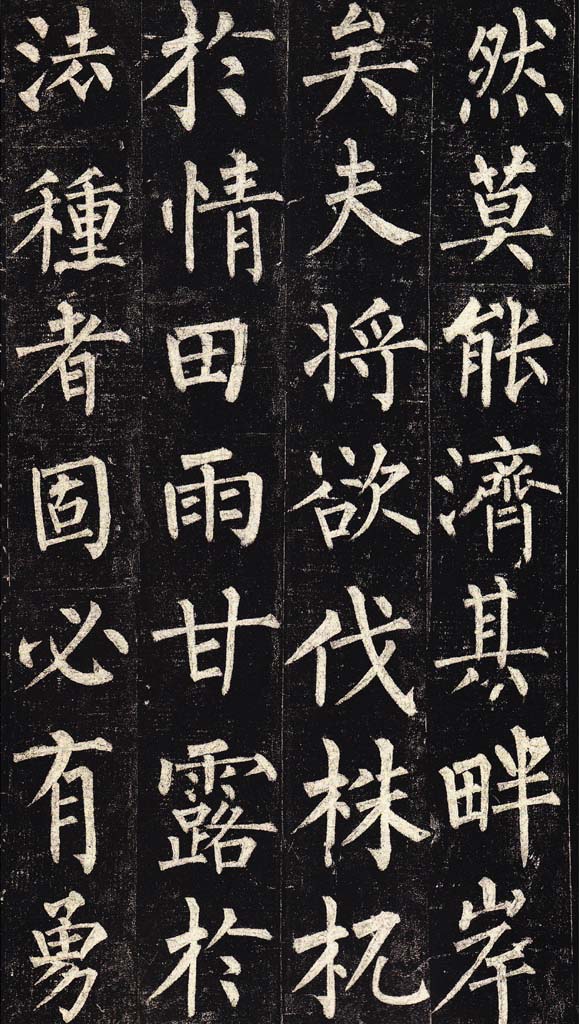 然莫能濟其畔岸
矣夫将欲伐株杌
於情田雨甘露於
法種者固必有勇